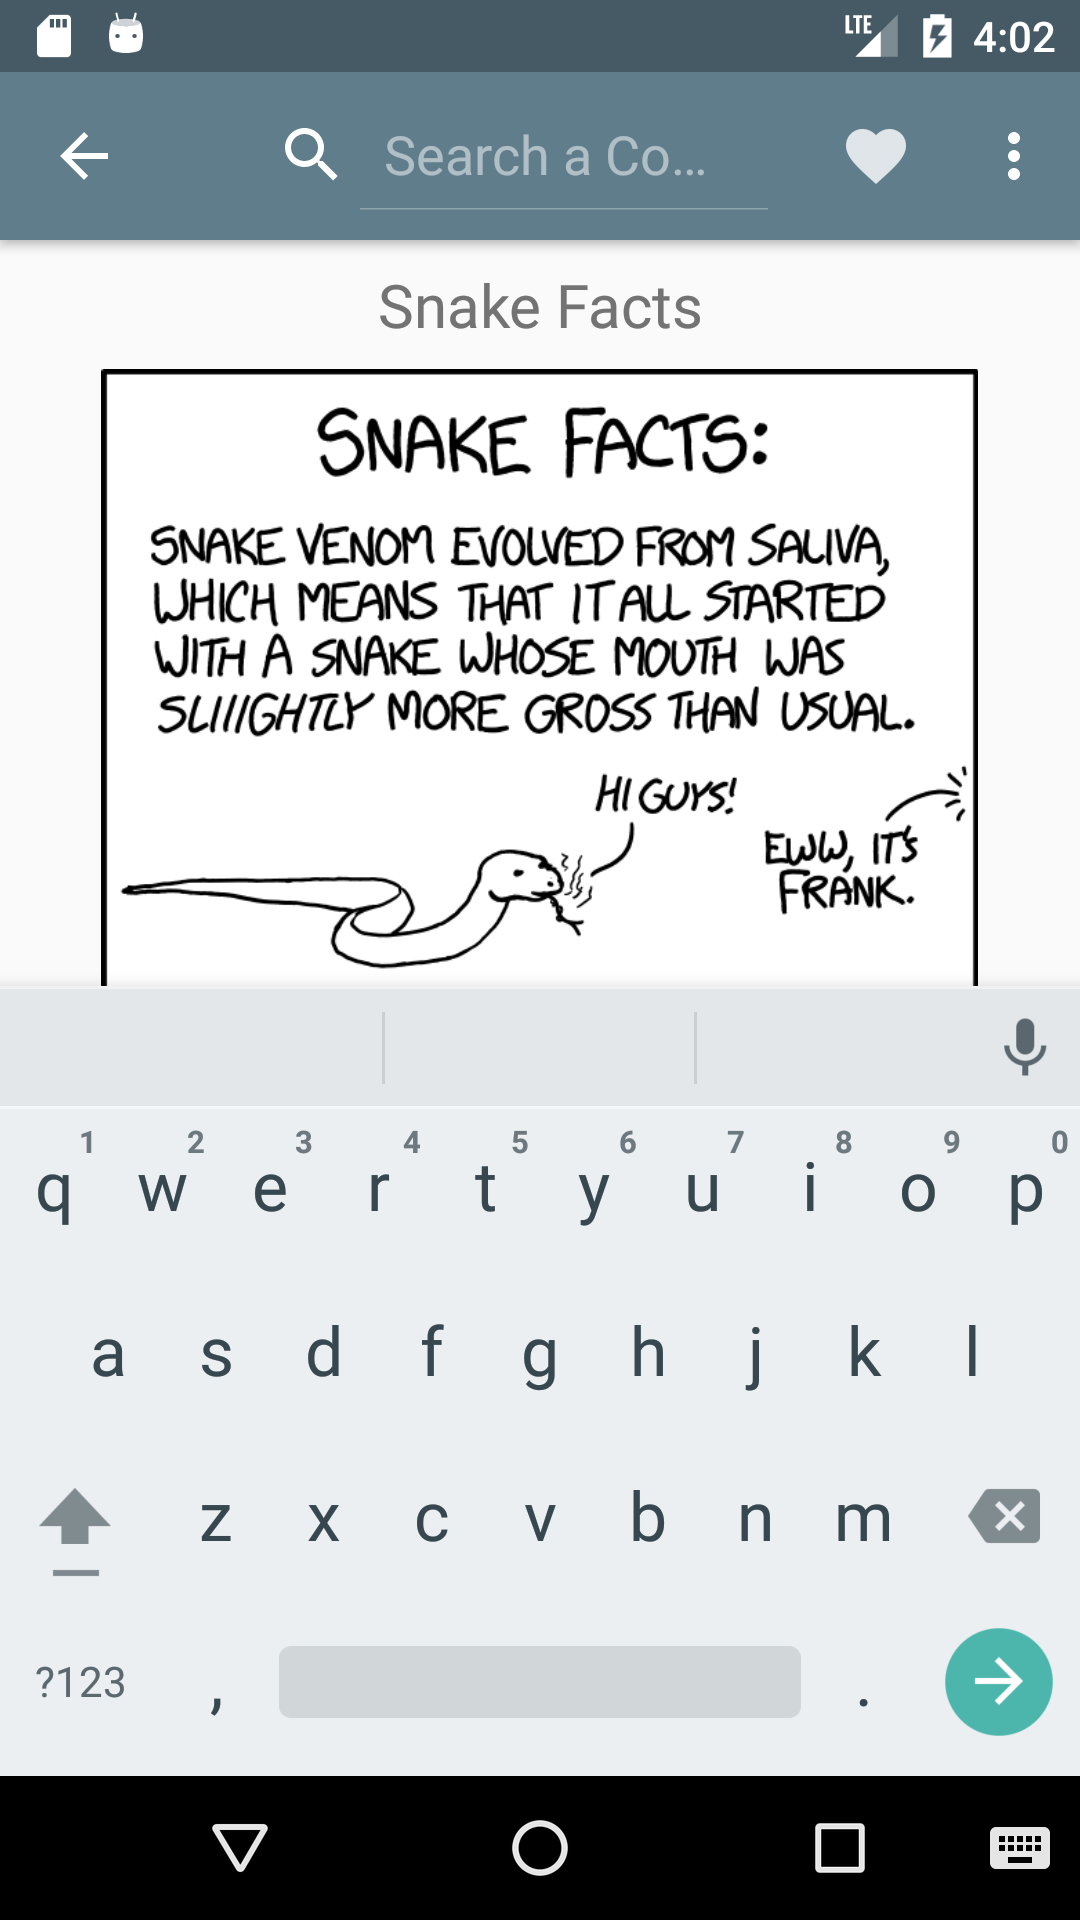 LTE 4:02
Search a Co...
Snake Facts
SNAKE FACTS:
SNAKE VENOM EVOLVED FROM SALIVA,
WHICH MEANS THAT IT ALL STARTED
WITH A SNAKE WHOSE MOUTH WAS
SLIIIGHTLY MORE GROSS THAN USUAL.
HI GUYS!
EWW, IT'S
FRANK.
1 2 3 4 5 6 7 8 9 0
q w e r t y u i o p
a s d f g h j k l
z x c v b n m
?123 , .